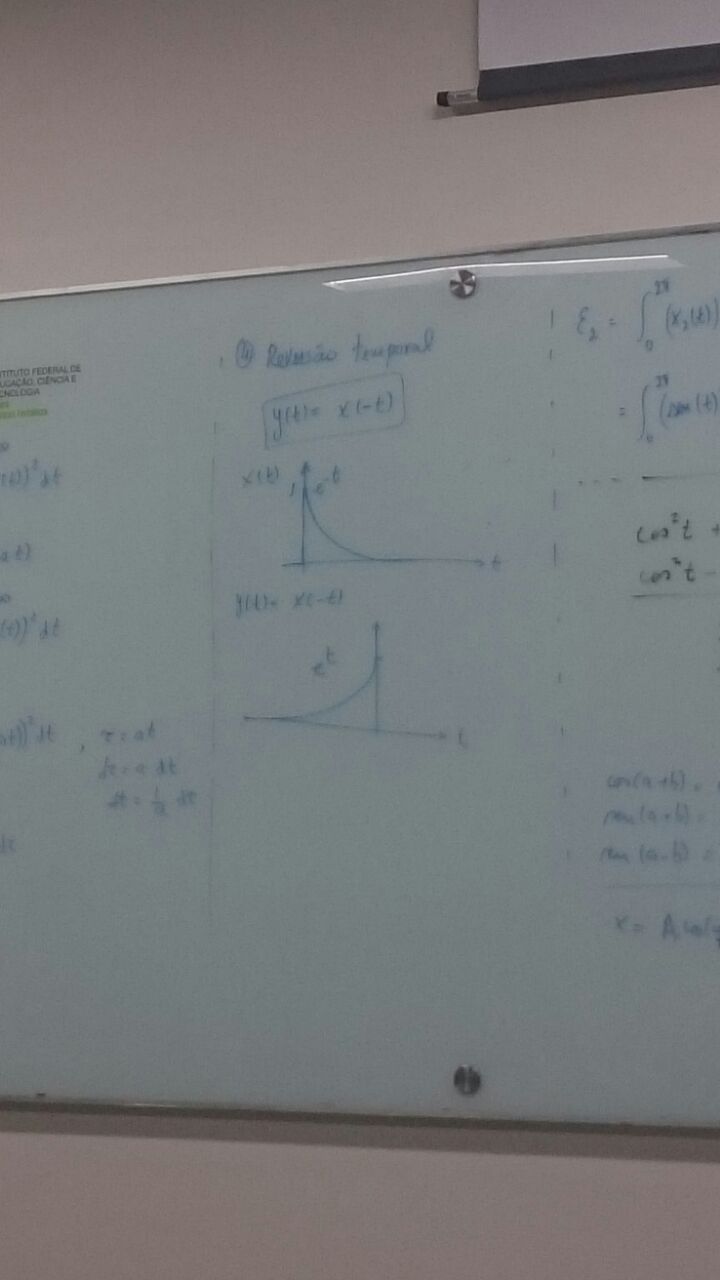 TITUTO FEDERAL DE
UCAÇÃO, CIÊNCIA E
CNOLOGIA
(t))² dt
at)
(t))² dt
at))² dt , τ = at
dτ = a dt
dt = 1/a dτ
dτ
④ Reversão temporal
y(t) = x(-t)
x(t)
1 e^-t
t
y(t) = x(-t)
e^t
t
E₂ = ∫₀^2π (x₂(t))
= ∫₀^2π (sen(t)
cos²t +
cos²t -
cos(a+b) =
sen(a+b) =
sen(a-b) =
x = A₁cos(